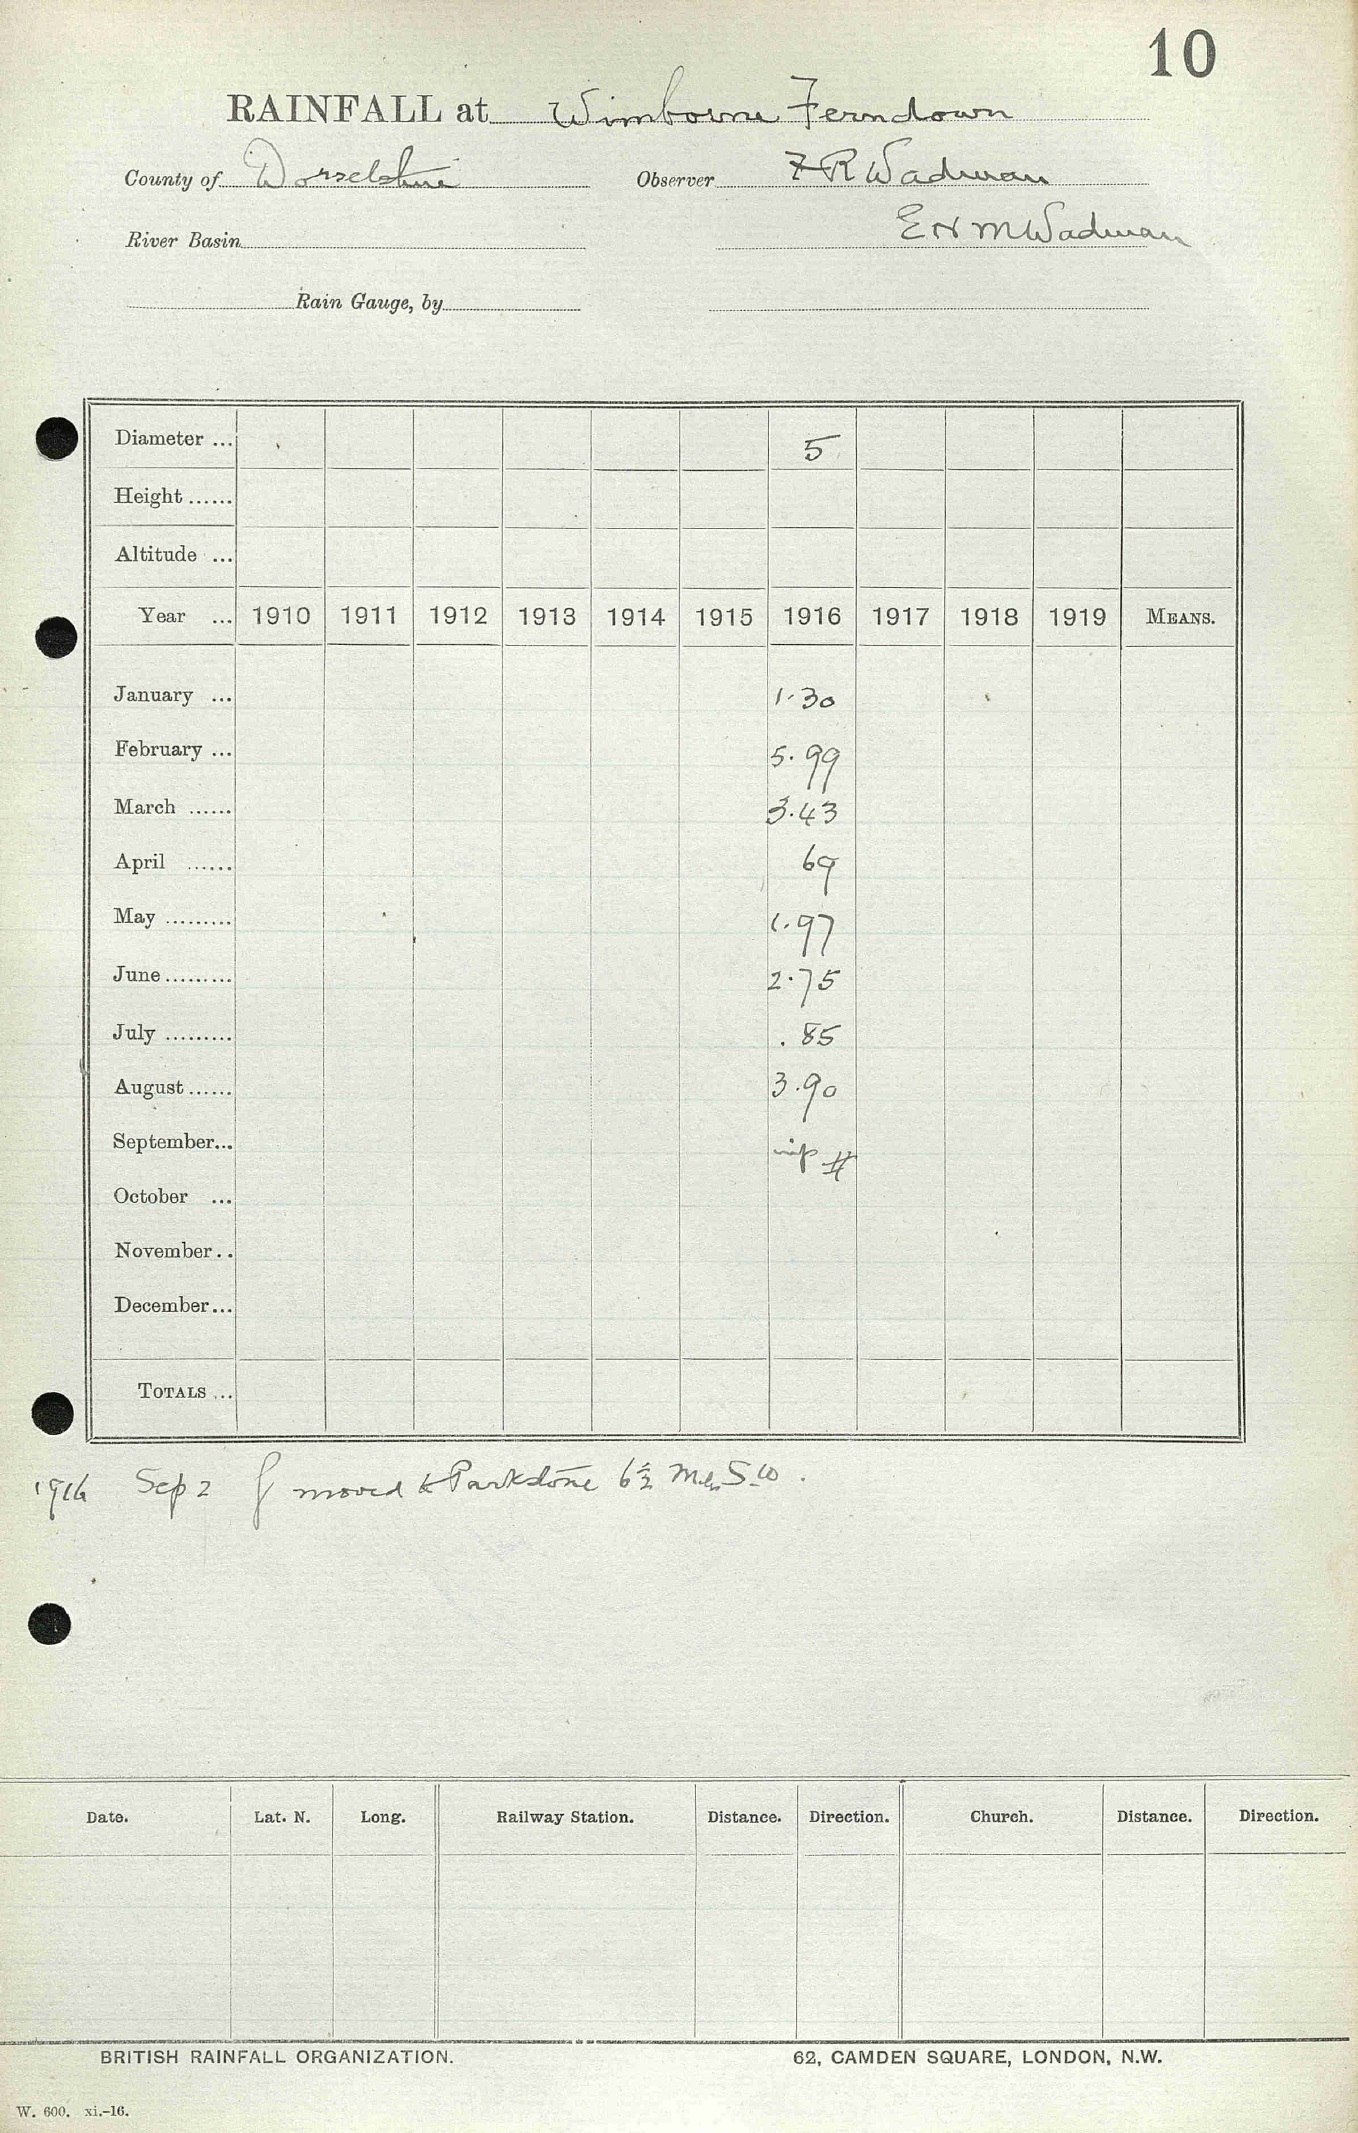 10
RAINFALL at Wimborne Ferndown
County of Dorsetshire Observer F R Wadman
River Basin E H M Wadman
Rain Gauge, by
Diameter ... 5
Height ......
Altitude ...
Year ... 1910 1911 1912 1913 1914 1915 1916 1917 1918 1919 MEANS.
January ... 1.30
February ... 5.99
March ...... 3.43
April ...... 69
May ......... 1.97
June ......... 2.75
July ......... .85
August ...... 3.90
September... #
October ...
November ..
December...
TOTALS ...
1916 Sep 2 moved to Parkstone 6½ Miles S.W.
Date. Lat. N. Long. Railway Station. Distance. Direction. Church. Distance. Direction.
BRITISH RAINFALL ORGANIZATION. 62, CAMDEN SQUARE, LONDON, N.W.
W. 600. xi.-16.